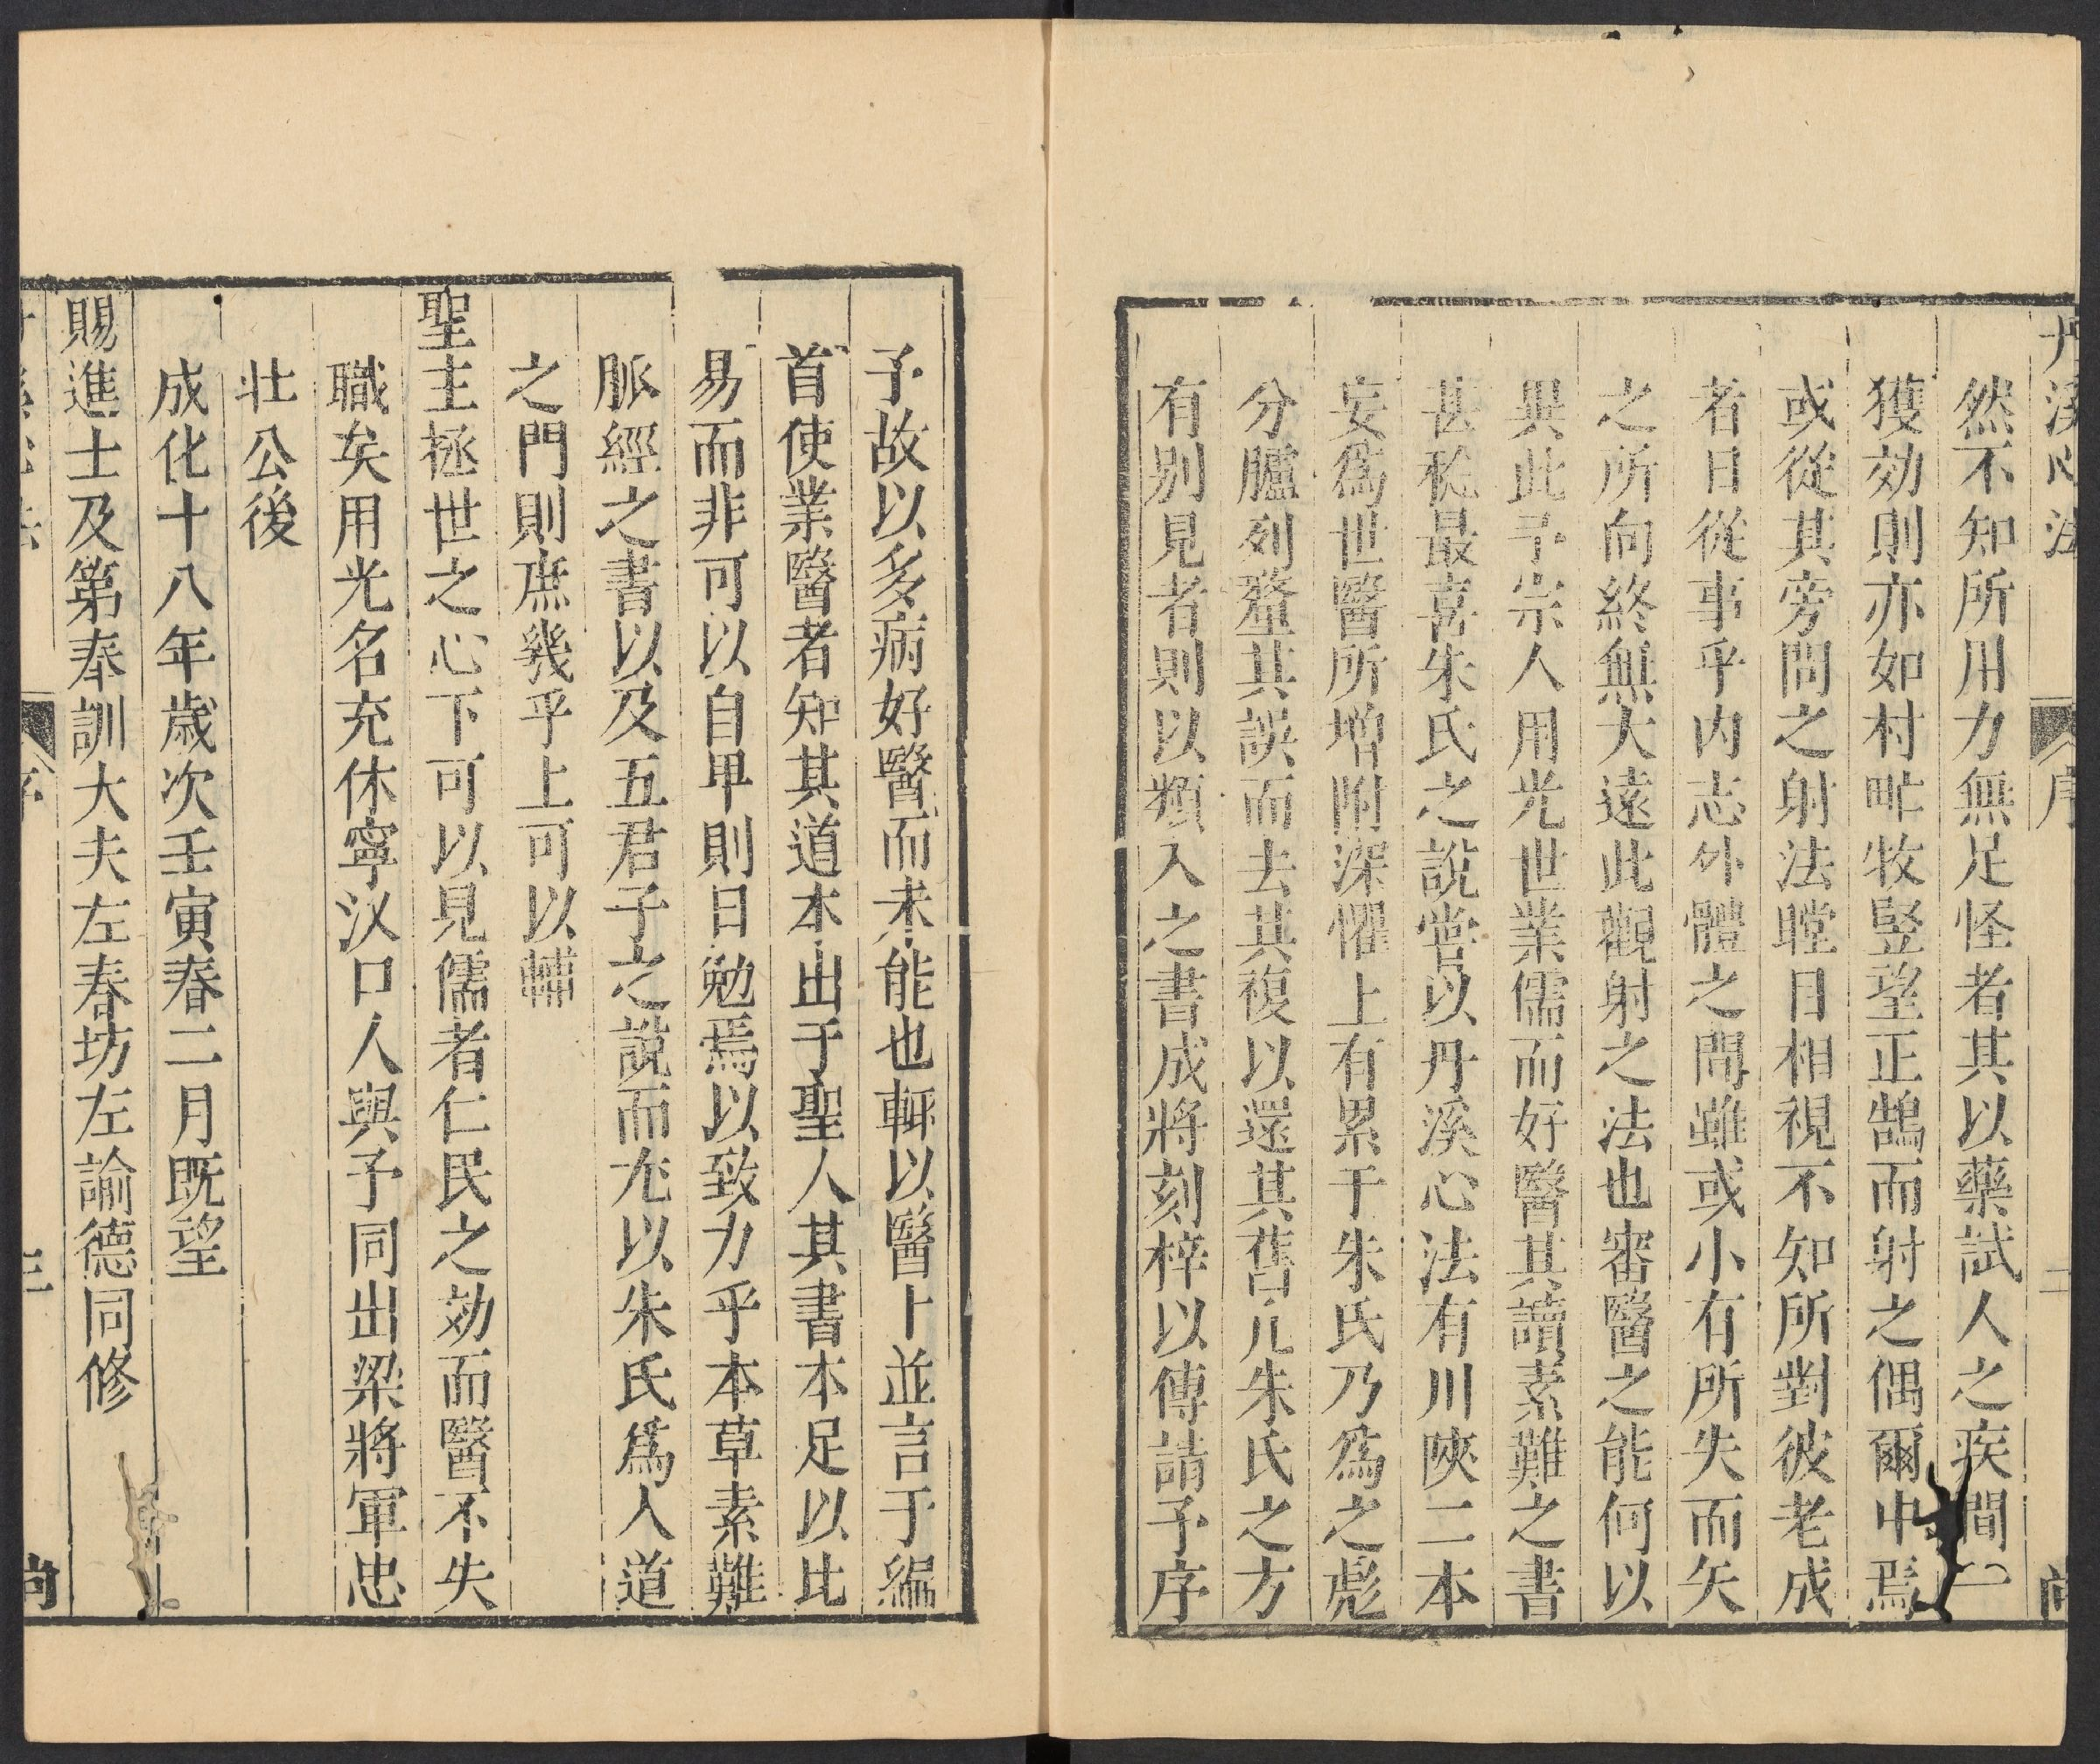 丹溪心法
序
二
尚
然不知所用力無足怪者其以藥試人之疾間一
獲効則亦如村甿牧竪望正鵠而射之偶爾中焉
或從其旁問之射法瞠目相視不知所對彼老成
者日從事乎内志外體之間雖或小有所失而矢
之所向終無大遠此觀射之法也審醫之能何以
異此予宗人用光世業儒而好醫其讀素難之書
甚稔最喜朱氏之說嘗以丹溪心法有川陝二本
妄爲世醫所增附深懼上有累于朱氏乃爲之彪
分臚列𨤲其誤而去其複以還其舊凡朱氏之方
有别見者則以類入之書成將刻梓以傳請予序
予故以多病好醫而未能也輒以醫卜並言于編
首使業醫者知其道本出于聖人其書本足以比
易而非可以自甲則日勉焉以致力乎本草素難
脈經之書以及五君子之說而尤以朱氏爲入道
之門則庶幾乎上可以輔
聖主拯世之心下可以見儒者仁民之効而醫不失
職矣用光名充休寧汊口人與予同出梁將軍忠
壯公後
成化十八年歲次壬寅春二月既望
賜進士及第奉訓大夫左春坊左諭德同修
序
三
尚